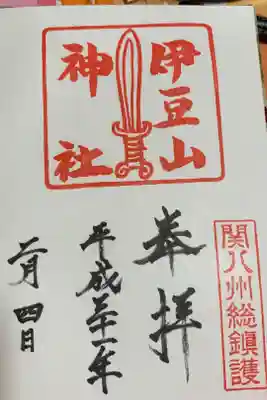 関八州総鎮護
伊豆山
神社
奉拝
平成二十一年
二月四日